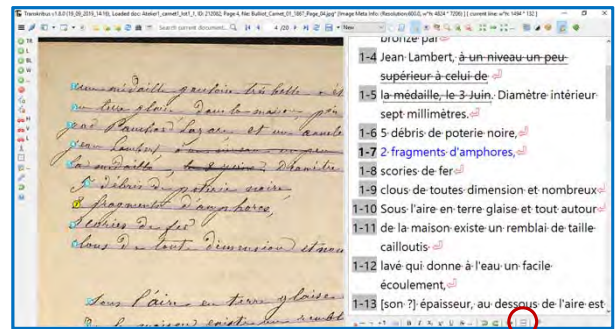 Transkribus v1.8.0 (19_09_2019_14:19), Loaded doc: Atelier1_carnet1_lot1_1, ID: 212062, Page 4, file: Bulliot_Carnet_01_1867_Page_04.jpg* [Image Meta Info: (Resolution:600.0, w*h: 4824 * 7296) ] [ current line: w*h: 1494 * 132 ]
Search current document...
4 /20
New
une médaille gauloise très belle
en terre glaise dans la maison
Jean Lambert, à un niveau un peu
la médaille, le 3 juin. Diamètre
5 débris de poterie noire
2 fragments d'amphores,
scories de fer
clous de toute dimension et nom
Sous l'aire en terre glaise
de la maison existe un rembl
bronze par
1-4 Jean Lambert, à un niveau un peu
supérieur à celui de
1-5 la médaille, le 3 Juin. Diamètre intérieur
sept millimètres.
1-6 5 débris de poterie noire,
1-7 2 fragments d'amphores,
1-8 scories de fer
1-9 clous de toutes dimension et nombreux
1-10 Sous l'aire en terre glaise et tout autour
1-11 de la maison existe un remblai de taille
cailloutis
1-12 lavé qui donne à l'eau un facile
écoulement,
1-13 [son ?] épaisseur, au dessous de l'aire est